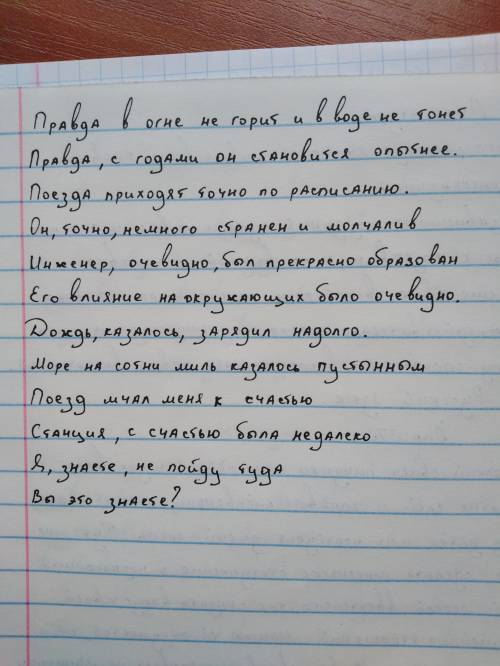 Правда в огне не горит и в воде не тонет
Правда, с годами он становится опытнее.
Поезда приходят точно по расписанию.
Он, точно, немного странен и молчалив
Инженер, очевидно, был прекрасно образован
Его влияние на окружающих было очевидно.
Дождь, казалось, зарядил надолго.
Море на сотни миль казалось пустынным
Поезд мчал меня к счастью
Станция, с счастью была недалеко
Я, знаете, не пойду туда
Вы это знаете?